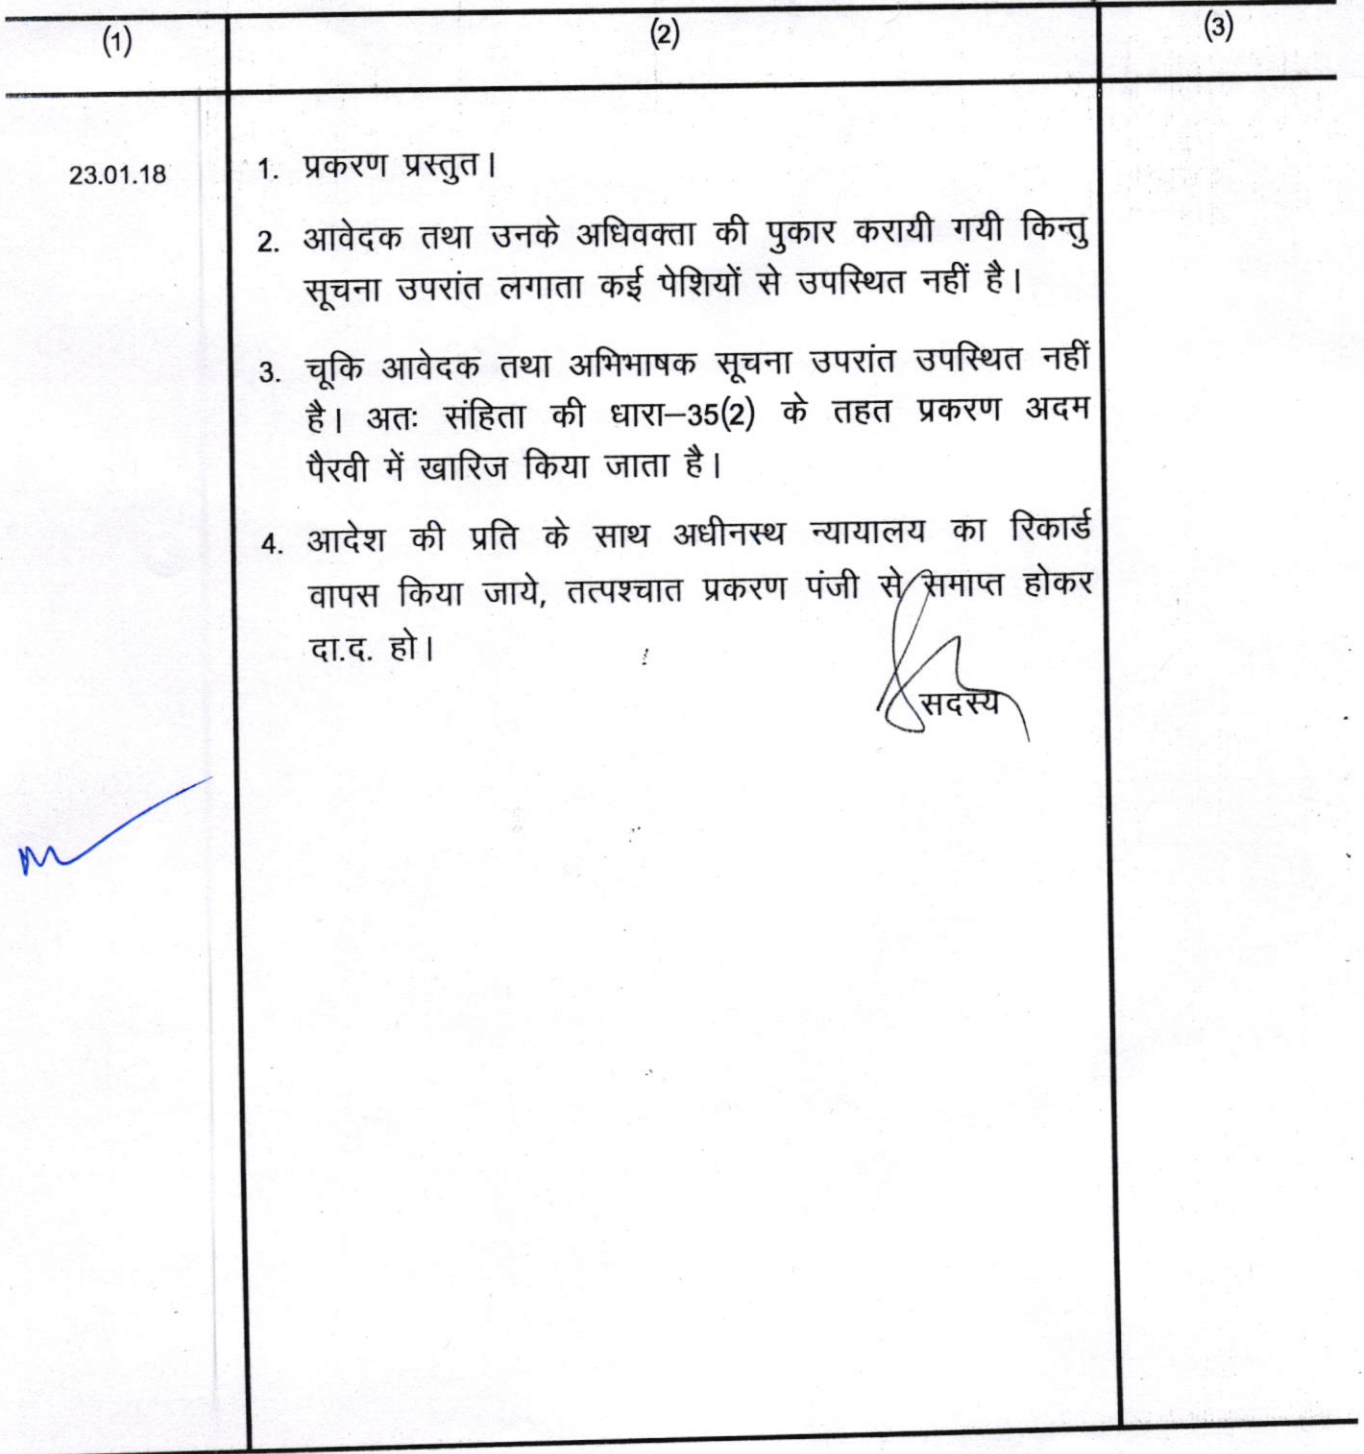 (1) (2) (3)
23.01.18 1. प्रकरण प्रस्तुत।
2. आवेदक तथा उनके अधिवक्ता की पुकार करायी गयी किन्तु
सूचना उपरांत लगाता कई पेशियों से उपस्थित नहीं है।
3. चूकि आवेदक तथा अभिभाषक सूचना उपरांत उपस्थित नहीं
है। अतः संहिता की धारा–35(2) के तहत प्रकरण अदम
पैरवी में खारिज किया जाता है।
4. आदेश की प्रति के साथ अधीनस्थ न्यायालय का रिकार्ड
वापस किया जाये, तत्पश्चात प्रकरण पंजी से समाप्त होकर
दा.द. हो।
सदस्य